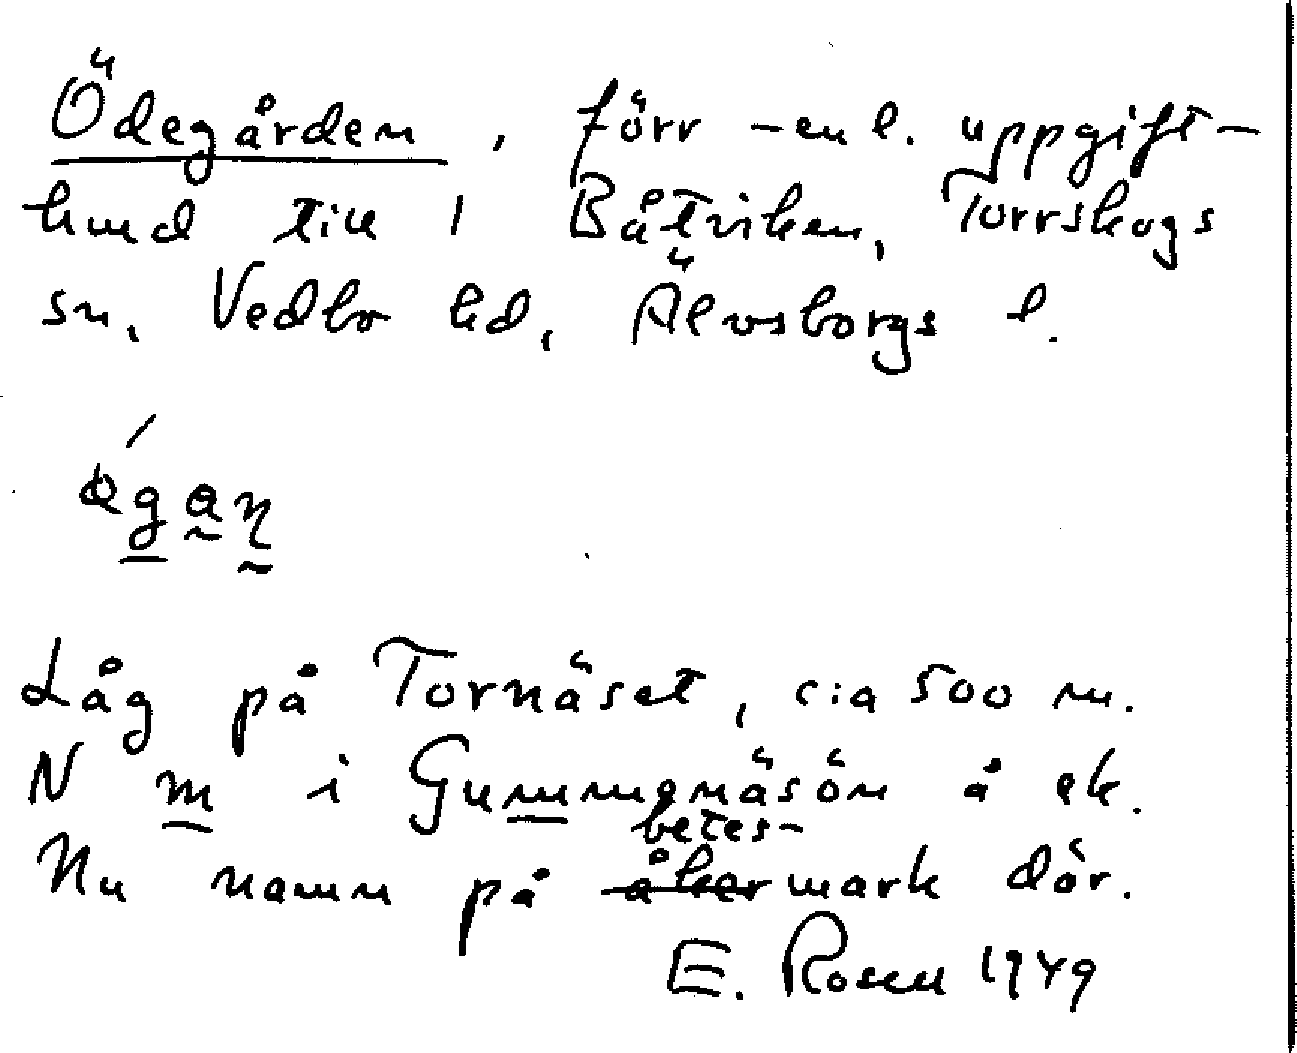 Ödegården, förr – en l. uppgift –
hmd till 1 Båtviken, Torrskogs
sn, Vedbo hd, Älvsborgs l.
Låg på Tornäset, cia 500 m.
N m i Gummenäsön å ek.
betes-
Nu namn på åkermark där.
E. Rosen 1949